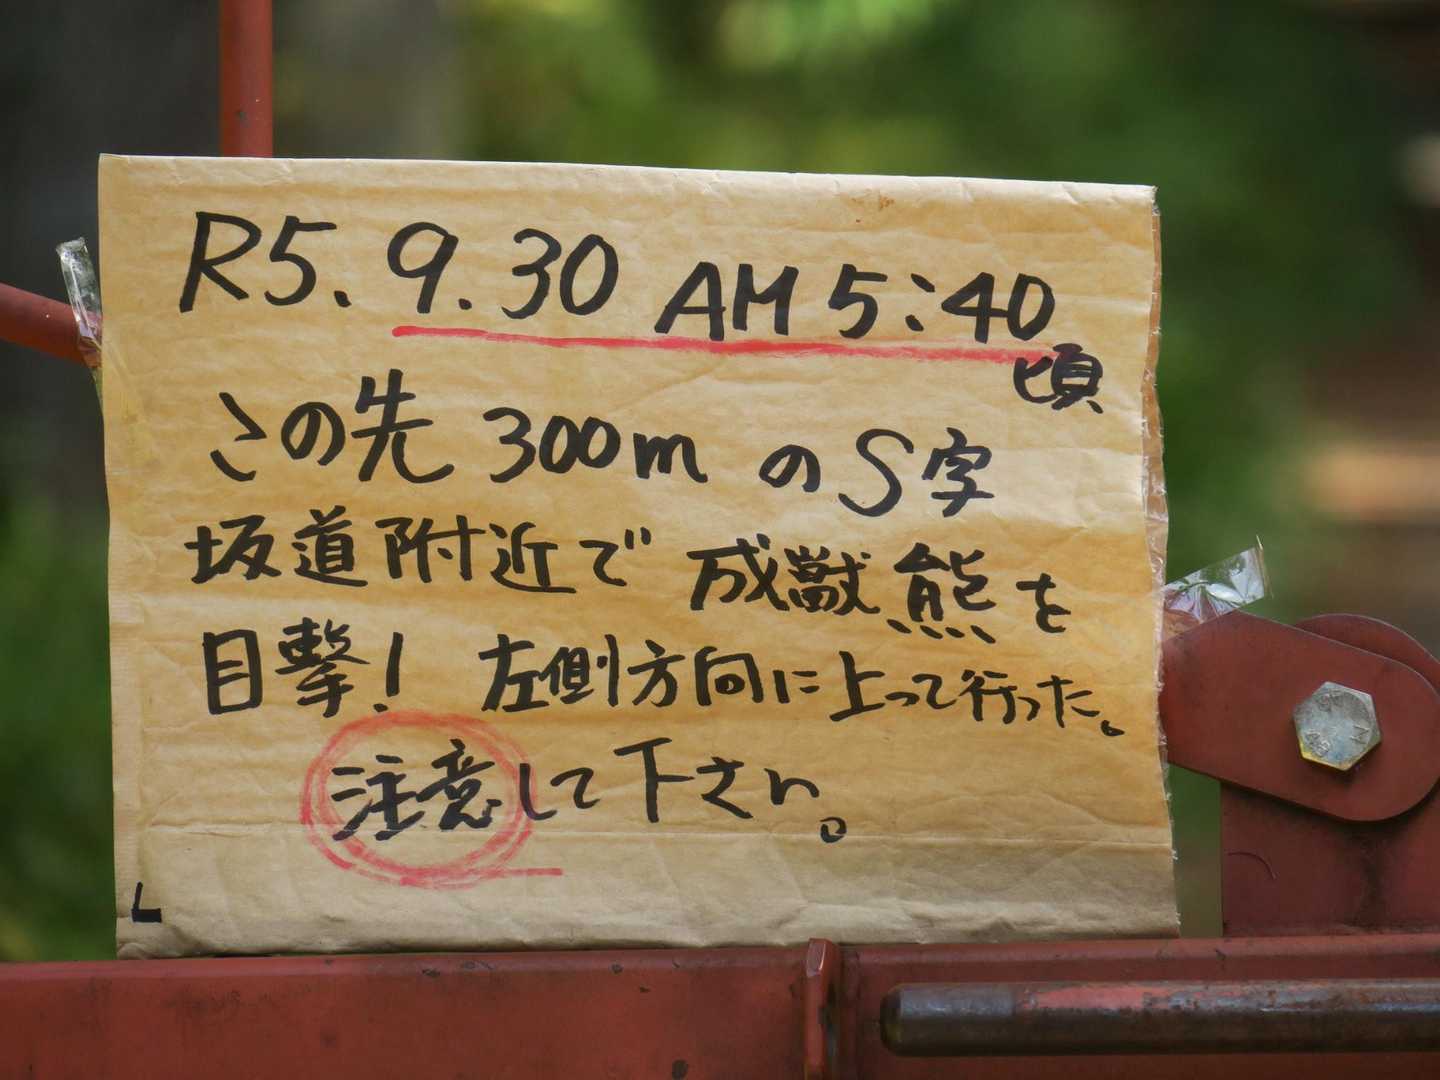 R5.9.30 AM5:40
頃
この先 300m の S字
坂道附近で 成獣熊を
目撃! 左側方向に上って行った。
注意して下さい。